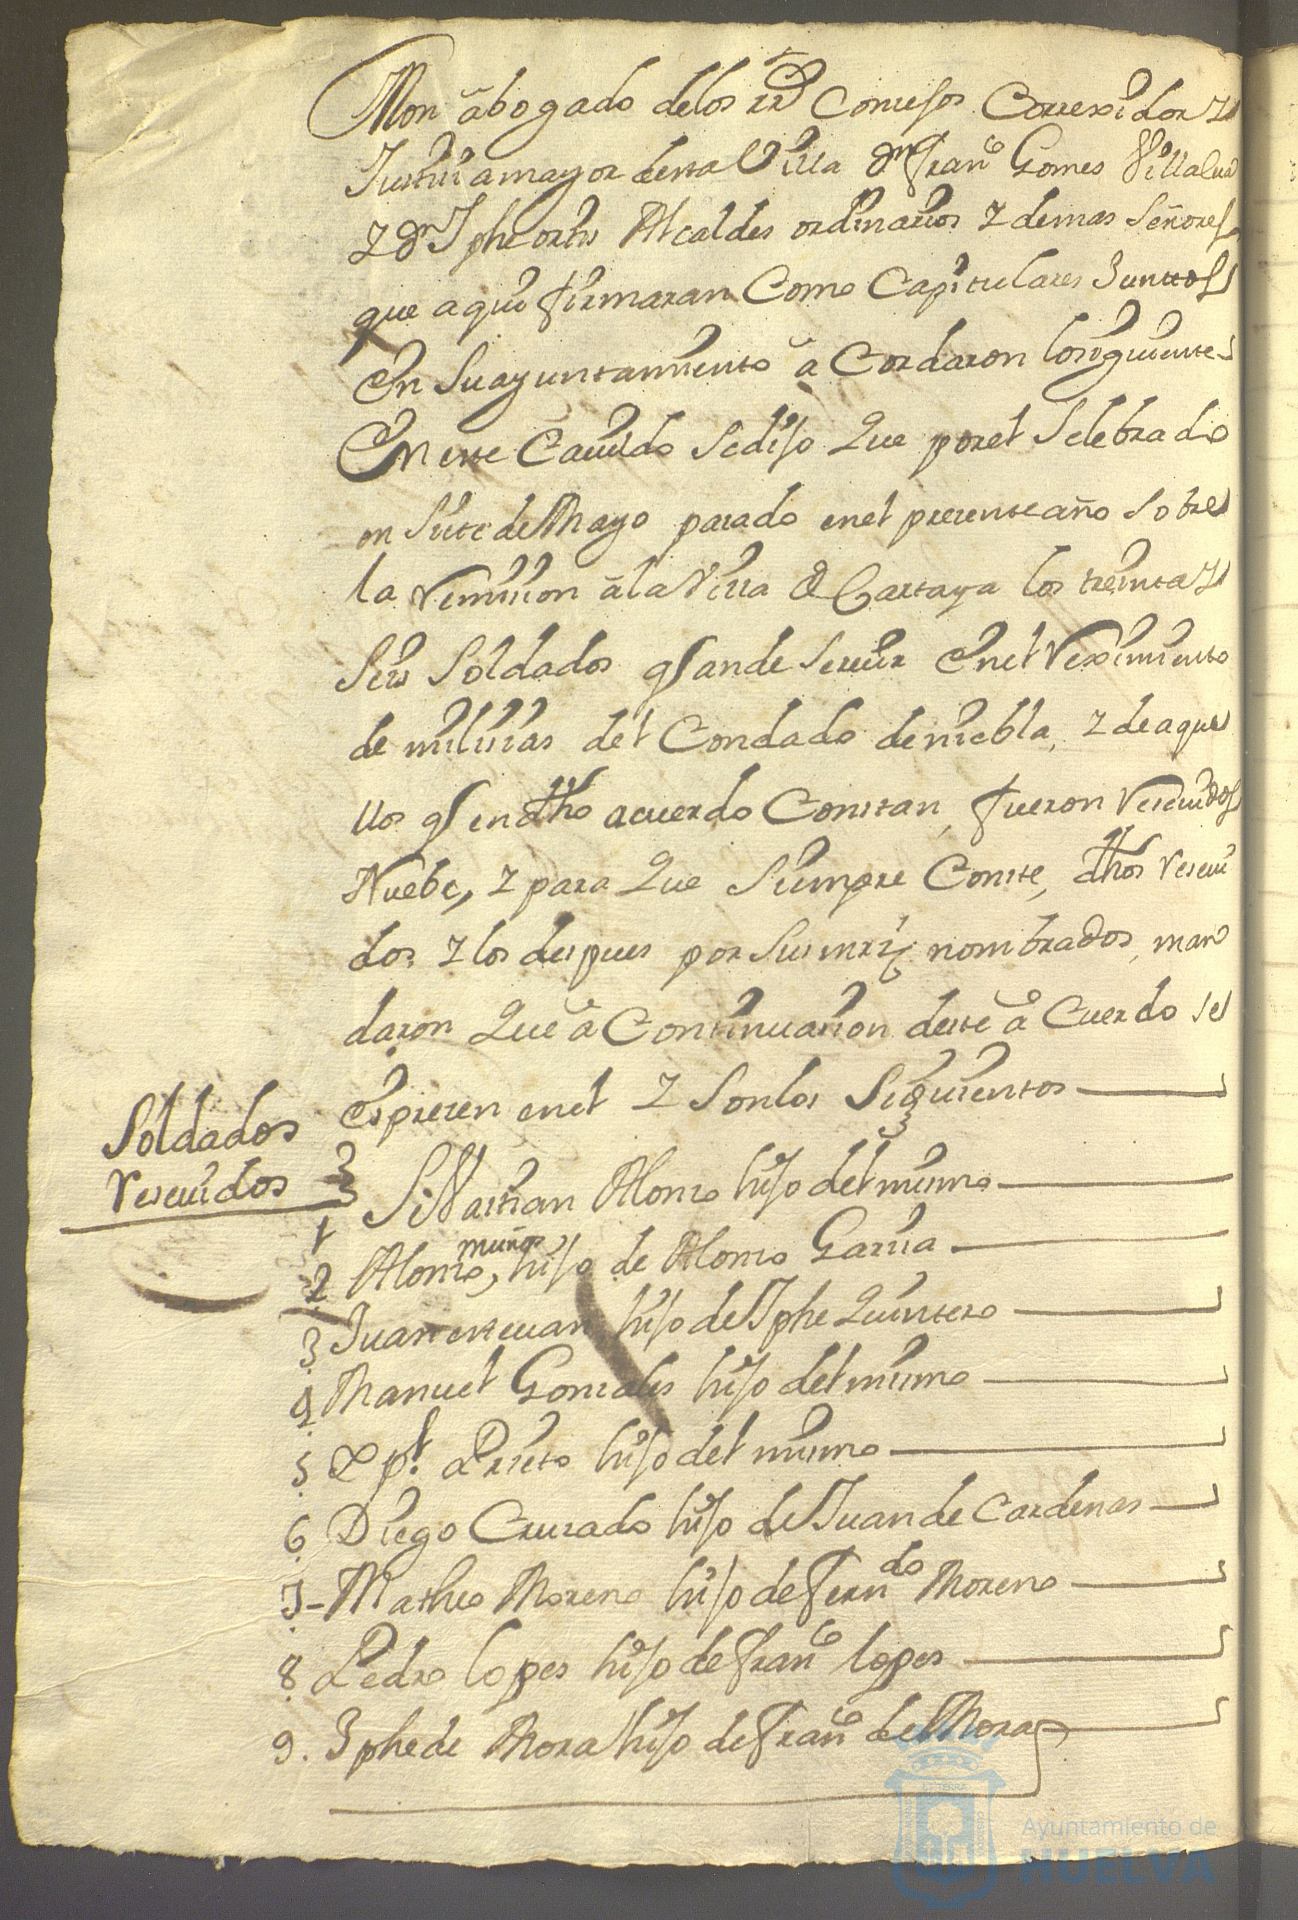 Mon abogado delos rrs Consejos Correxidor y
Justicia mayor desta Villa Dn Franco Gomes Villalva
y Dn Jphe ortis Alcaldes ordinarios y demas Señores
que aqui firmaran Como Capitulares Juntos
en Su ayuntamiento acordaron losiguiente
En este Cavildo Sedijo Que porel Selebrado
en Siete de Mayo pasado enel presente año Sobre
la remision ala Villa de Cartaya los treinta y
Seis Soldados qe ande Servir enel reximiento
de milicias del Condado deniebla, y deaque
llos qe en dho acuerdo Constan, fueron resevidos
Nuebe, y para Que Siempre Conste, dhos resevi
dos y los despues por Sus mrds nombrados, man
daron Que a Continuasion deste acuerdo se
espresen enel y Sonlos Siguientes
Soldados
resevidos
1 Sivastian Alonso hijo del mismo
2 Alonso muñoz, hijo de Alonso Garsia
3 Juan estevan hijo de Jphe Quintero
4 Manuel Gonsales hijo del mismo
5 Xptl Prieto hijo del mismo
6 Diego Crusado hijo de Juan de Cardenas
7 - Matheo Moreno hijo de Ferndo Moreno
8 Pedro lopes hijo de Franco lopes
9. Jphe de Mora hijo de Franco de Mora
Ayuntamiento de
HUELVA